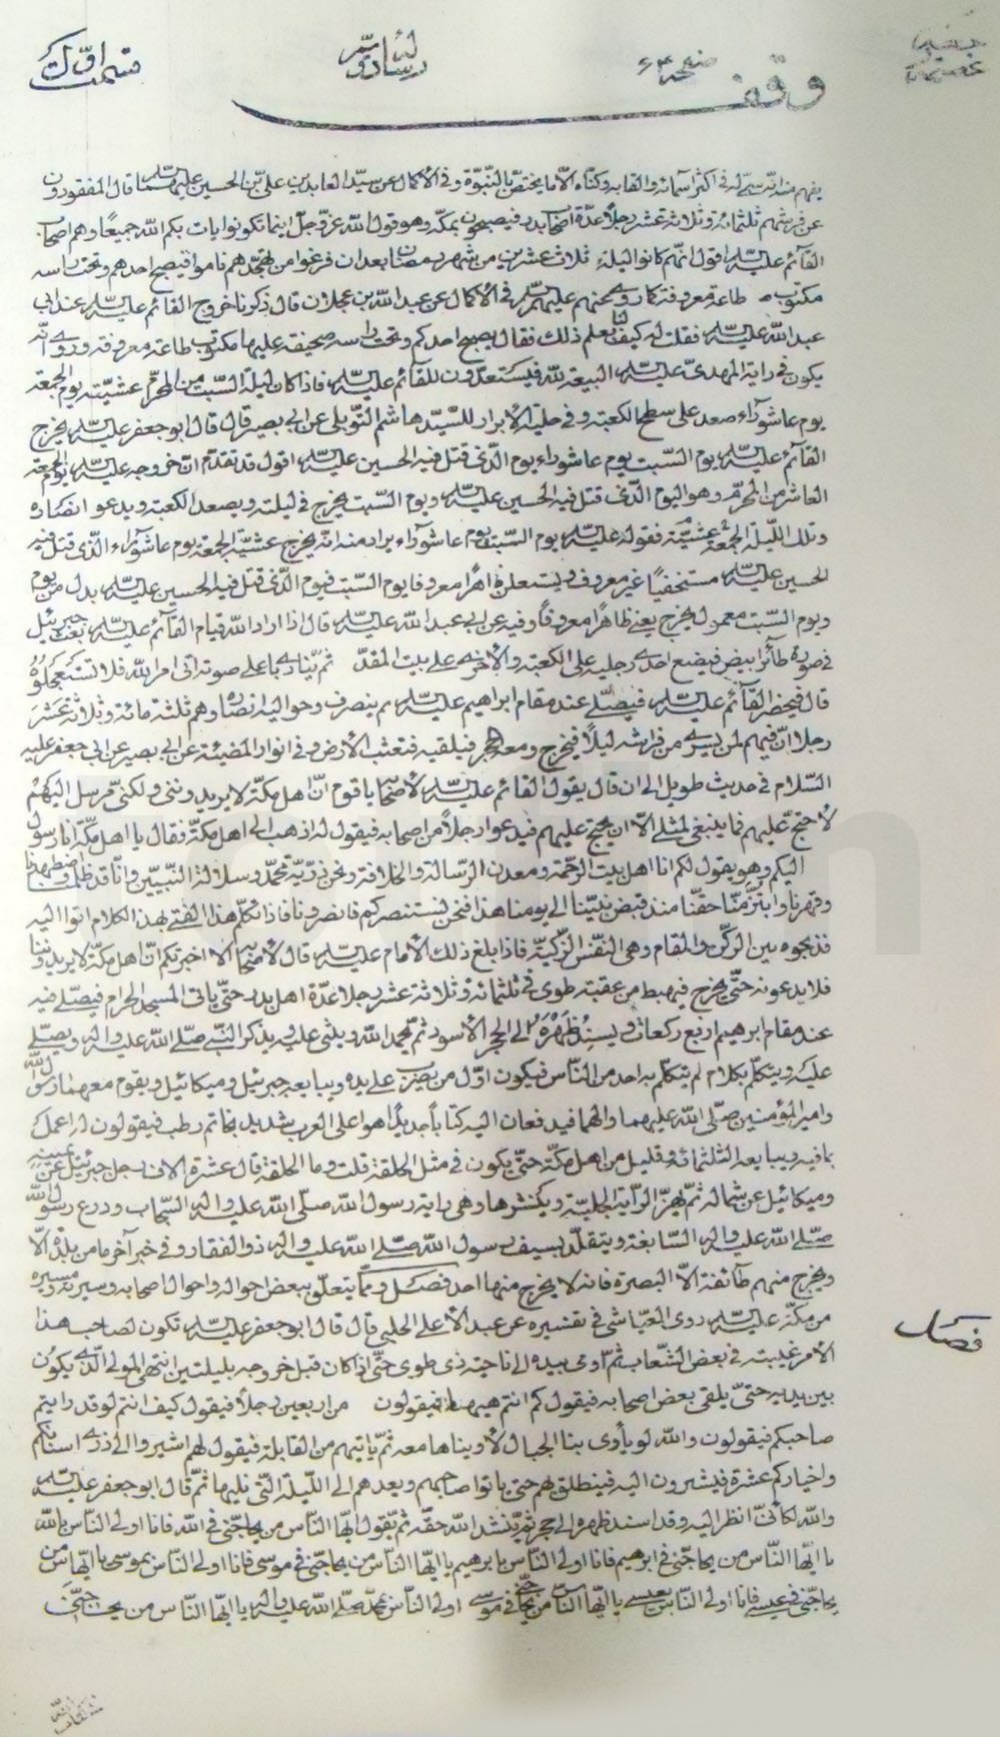 صفحه ۶۴
وقف
يفهم منه انّه سمّى له فى اكثر اسمائه والقابه وكناه الّا ما يختصّ بالنّبوّة وفى الاكمال عن سيّد العابدين علىّ بن الحسين عليهما السّلام قال المفقودون
عن فرشهم ثلثمائة وثلاثة عشر رجلاً عدّة اصحاب بدر فيصبحون بمكّة وهو قول اللّه عزّ وجلّ اينما تكونوا يات بكم اللّه جميعًا وهم اصحاب
القآئم عليه السّلام اقول انّهم كانوا ليلة ثلاث عشرين من شهر رمضان بعد ان فرغوا من تهجّدهم ناموا فيصبح احدهم وتحت راسه
مكتوب طاعة معروفة فى الاكمال عن عبد اللّه بن عجلان قال ذكرنا خروج القائم عليه السّلام عند ابى
عبد اللّه عليه السّلام فقلت له كيف لنا بعلم ذلك فقال يصبح احدكم وتحت راسه صحيفة عليها مكتوب طاعة معروفة وروى انّه
يكون فى راية المهدىّ عليه السّلام البيعة للّه فيستعدّون للقآئم عليه السّلام فاذا كان ليلة السّبت من المحرّم عشيّة يوم الجمعة
يوم عاشورآء صعد على سطح الكعبة وفى حلية الابرار للسّيّد هاشم التّوبلى عن ابى بصير قال قال ابو جعفر عليه السّلام يخرج
القآئم عليه السّلام يوم السّبت يوم عاشوراء يوم الّذى قتل فيه الحسين عليه السّلام اقول قد تقدّم انّ خروجه عليه السّلام يوم الجمعة
العاشر من المحرّم وهو اليوم الّذى قتل فيه الحسين عليه السّلام ويوم السّبت يخرج فى ليلته ويصعد الكعبة ويدعو انصاره
وتلك اللّيلة الجمعة عشيّته فقوله عليه السّلام يوم السّبت يوم عاشورآء يراد منه انّه يخرج عشيّة الجمعة يوم عاشورآء الّذى قتل فيه
الحسين عليه السّلام مستخفيًا غير معروف ويستعلن ظاهرًا معروفا يوم السّبت فيوم الّذى قتل فيه الحسين عليه السّلام بدل من يوم
ويوم السّبت معمول يخرج يعنى ظاهرًا معروفاً وفيه عن ابى عبد اللّه عليه السّلام قال اذا اراد اللّه قيام القآئم عليه السّلام بعث جبرئيل
فى صورة طآئر ابيض فيضع احدى رجليه على الكعبة والاخرى على بيت المقدّس ثم ينادى باعلى صوته اتى امر اللّه فلا تستعجلوه
قال فيحضر القآئم عليه السّلام فيصلّى عند مقام ابراهيم عليه السّلام ثم ينصرف وحواليه انصاره وهم ثلثمائة وثلاثة عشر
رجلا انّ فيهم لمن يسرى من فراشه ليلاً فيخرج ومعه الحجر فيلقيه فتعشب الارض وفى انوار المضيئة عن ابى بصير عن ابى جعفر عليه
السّلام فى حديث طويل الى ان قال يقول القائم عليه السّلام لاصحابه يا قوم انّ اهل مكّة لا يريدوننى ولكنّى مرسل اليهم
لاحتجّ عليهم فما ينبغى لمثلى الّا ان يحتجّ عليهم فيدعو رجلاً من اصحابه فيقول له اذهب الى اهل مكّة فقال يا اهل مكّة انا رسول
اليكم وهو يقول لكم انا اهل بيت الرّحمة ومعدن الرّسالة والخلافة ونحن ذرّيّة محمّد وسلالة النّبيّين وانّا قد ظلمنا واضطهدنا
وقهرنا وابتزّ منّا حقّنا منذ قبض نبيّنا الى يومنا هذا فنحن نستنصركم فانصرونا فاذا تكلّم هذا الفتى بهذا الكلام اتوا اليه
فذبحوه بين الرّكن والمقام وهى النّفس الزّكيّة فاذا بلغ ذلك الامام عليه السّلام قال لاصحابه الا اخبرتكم انّ اهل مكّة لا يريدوننا
فلا يدعونه حتّى يخرج فيهبط من عقبة طوى فى ثلثمائة وثلاثة عشر رجلا عدّة اهل بدر حتّى ياتى المسجد الحرام فيصلّى فيه
عند مقام ابرهيم اربع ركعات ويسند ظهره الى الحجر الاسود ثمّ يحمد اللّه ويثنى عليه ويذكر النّبىّ صلّى اللّه عليه واله ويصلّى
عليه ويتكلّم بكلام لم يتكلّم به احد من النّاس فيكون اوّل من يضرب على يده ويبايعه جبرئيل وميكائيل ويقوم معهما رسول اللّه
وامير المؤمنين صلّى اللّه عليهما والهما فيدفعان اليه كتابا جديدًا هو على العرب شديد بخاتم رطب فيقولون له اعمل
بما فيه ويبايعه الثلثمائة وقليل من اهل مكّة حتّى يكون فى مثل الحلقة قلت وما الحلقة قال عشرة الاف رجل جبرئيل عن يمينه
وميكائيل عن شماله ثمّ يهزّ الرّاية الجليّة وينشرها وهى راية رسول اللّه صلّى اللّه عليه واله السّحاب ودرع رسول اللّه
صلّى اللّه عليه واله السّابغة ويتقلّد بسيف رسول اللّه صلّى اللّه عليه واله ذو الفقار وفى خبر آخر ما من بلدة الّا
ويخرج منهم طآئفة الّا البصرة فانه لا يخرج منها احد فصل وممّا يتعلّق ببعض احواله واحوال اصحابه وسيرته ومسيره
من مكّة عليه السّلام روى العيّاشى فى تفسيره عن عبد الاعلى الحلبى قال قال ابو جعفر عليه السّلام تكون لصاحب هذا
الامر غيبة فى بعض الشّعاب ثمّ اومى بيده الى ناحية ذى طوى حتّى اذا كان قبل خروجه بليلتين انتهى المولى الّذى يكون
بين يديه حتّى يلقى بعض اصحابه فيقول كم انتم ههنا فيقولون من اربعين رجلاً فيقول كيف انتم لو قد رايتم
صاحبكم فيقولون واللّه لو ياوى بنا الجبال لاويناها معه ثمّ ياتيهم من القابلة فيقول لهم اشيروا الى ذوى اسنانكم
واخياركم عشرة فيشيرون اليه فينطلق بهم حتى ياتوا صاحبهم ويعدهم الى اللّيلة الّتى تليها ثمّ قال ابو جعفر عليه السّلام
واللّه لكأنّى انظر اليه وقد اسند ظهره الى حجر ثمّ ينشد اللّه حقّه ثمّ يقول ايّها النّاس من يحاجّنى فى اللّه فانا اولى الناس باللّه
يا ايّها النّاس من يحاجّنى فى ابرهيم فانا اولى النّاس بابرهيم يا ايّها النّاس من يحاجّنى فى موسى فانا اولى النّاس بموسى يا ايّها النّاس من
يحاجّنى فى عيسى فانا اولى النّاس بعيسى يا ايّها النّاس من يحاجّنى فى موسى اولى النّاس بمحمّد صلّى اللّه عليه واله يا ايّها النّاس من يحاجّنى
فصل